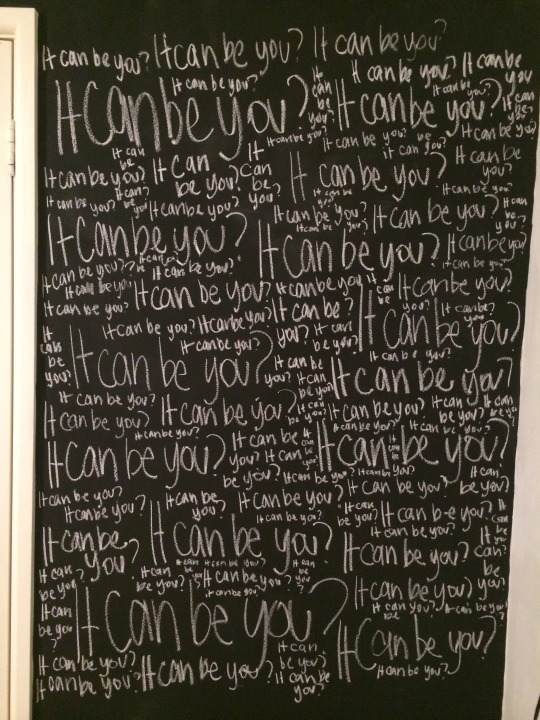 It can be you? It can be you? It can be you?
It can be you? It can be you?
It can be you? It can be you?
It can be you? It can be you? It can be you? It can be you?
It can be you? It can be you? It can be you?
It can be you? It can be you?
It can be you? It can be you? It can be you? It can be you?
It can be you? It can be you? It can be you?
It can be you? It can be you? It can be you? It can be you?
It can be you? It can be you? It can be you?
It can be you? It can be you? It can be you?
It can be you? It can be you? It can be you?
It can be you? It can be you? It can be you? It can be you?
It can be you? It can be you? It can be? you? It can be you?
It can be you? It can be you? It can be you?
It can be you? It can be you? It can be you?
It can be you? It can be you? It can be you?
It can be you? It can be you? It can be you? It can be you?
It can be you? It can be you? It can be you?
It can be you? It can be you? It can be you?
It can be you? It can be you? It can be you? It can be you?
It can be you? It can be you? It can be you? It can be you?
It can be you? It can be you? It can be you?
It can be you? It can be you? It can be you?
It can be you? It can be you? It can be you? It can be you?
It can be you? It can be you?
It can be you? It can be you?
It can be you? It can be you? It can be you? It can be you?
It can be you? It can be you?